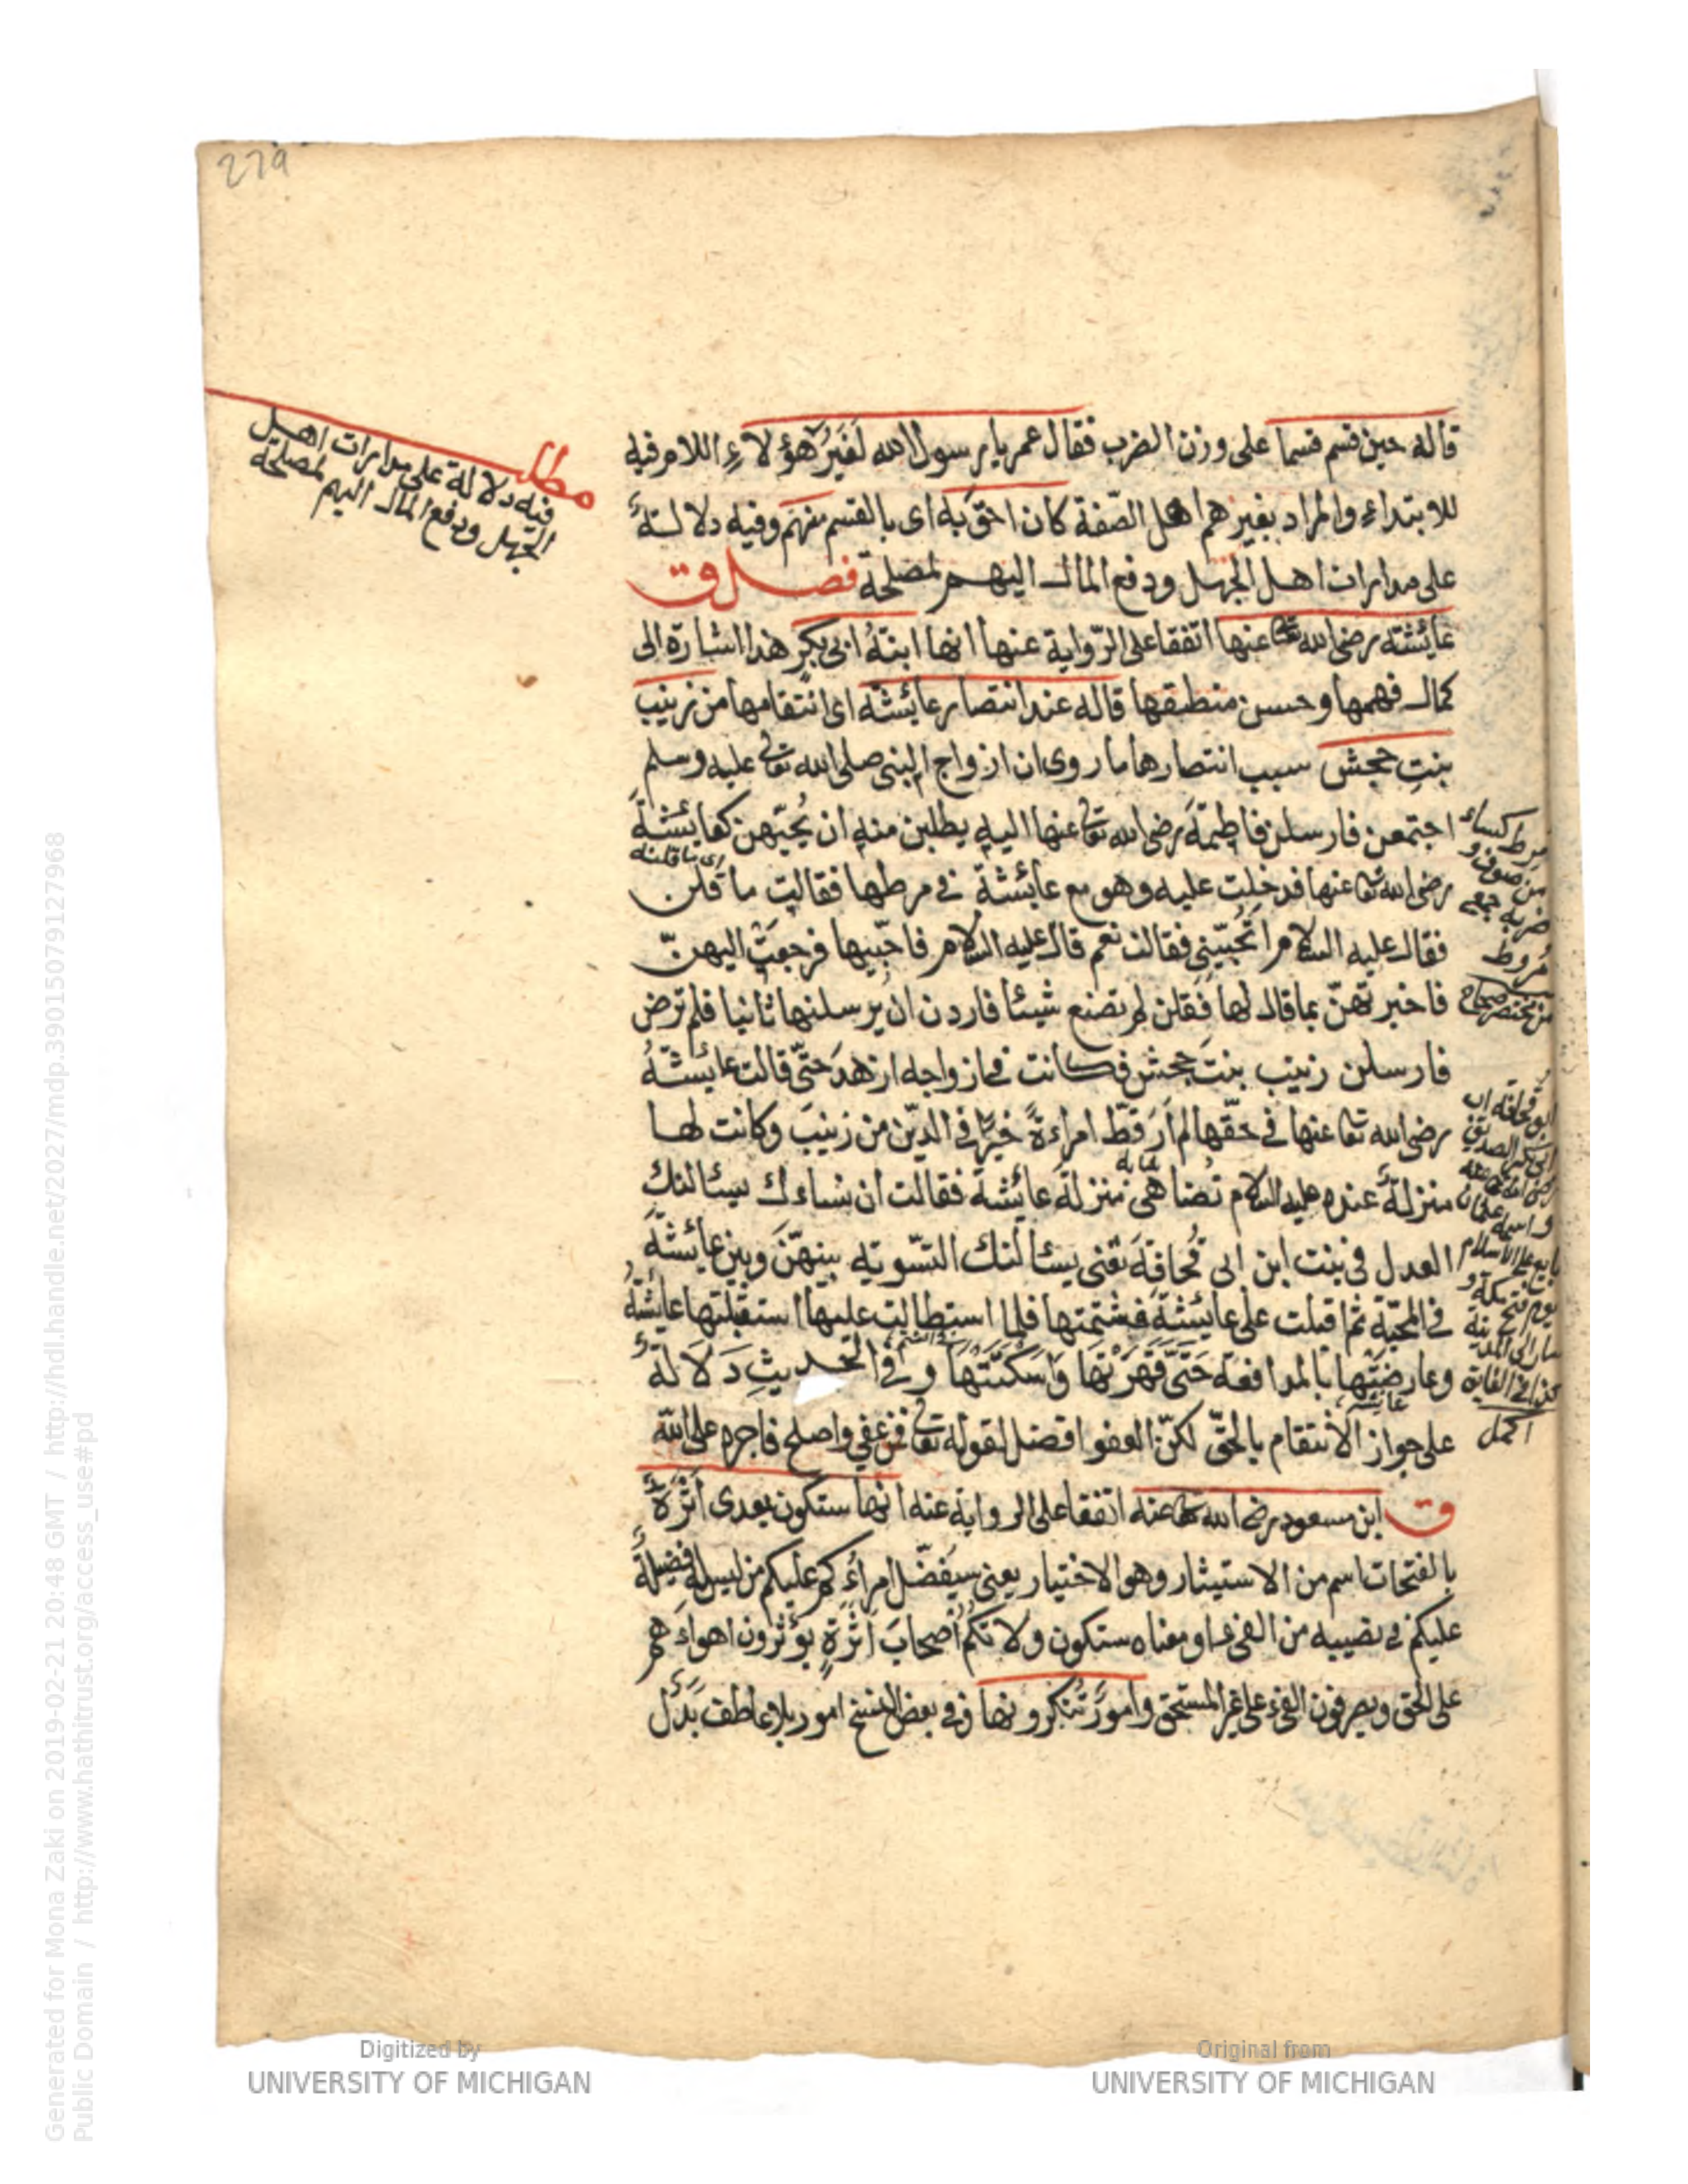 279
قاله حين قسم قسما على وزن الضرب فقال عمر يا رسول الله لَغَيْرُ هؤلاءِ اللام فيه
للابتداء والمراد بغيرهم اهل الصّفة كان احقّ به اى بالقسم منهم وفيه دلالة
على مدارات اهل الجهل ودفع المال اليهم لمصلحة فصل ق
عائشة رضى الله تعا عنها اتفقا على الرّواية عنها انها ابنةُ ابى بكرٍ هذا اشارة الى
كمال فهمها وحسن منطقها قاله عند انتصار عائشة اى انتقامها من زينب
بنتِ جحش سبب انتصارها ما روى ان ازواج النبى صلى الله تعا عليه وسلم
اجتمعن فارسلن فاطمةَ رضى الله تعا عنها اليه يطلبن منه ان يُحبّهن كعايشةَ
اى ما قلنه
رضى الله تعا عنها فدخلت عليه وهو مع عائشة فى مرطها فقالت ما قلن
فقال عليه السلام اَتُحبّينى فقالت نعم قال عليه السلام فاحبّيها فرجعَتْ اليهنّ
فاخبرتهنّ بما قال لها فقلن لم تصنع شيئا فاردن ان يرسلنها ثانيا فلم ترض
فارسلن زينب بنتَ جحش فكانت فى ازواجه ازهدَ حتّى قالت عايشةُ
رضى الله تعا عنها فى حقّها لم اَرَ قطّ امراءةً خيرًا فى الدّين من زينبَ وكانت لها
منزلةٌ عنده عليه السلام تُضاهى منزلةَ عائشة فقالت ان نساءك يسئالنك
العدل فى بنت ابن ابى قُحافةَ تعنى يسئالنك التسّوية بينهنّ وبين عايشةَ
فى المحبّة ثم اقبلت على عايشةَ فشتمتها فلما استطالت عليها استقبلتها عايشةُ
فى الشتم
وعارضتها بالمدافعة حَتَّى قَهَرَتْهَا وَاَسْكَتَتْهَا وفى الحديثِ دَلَالَةٌ
عايشة
على جواز الانتقام بالحقّ لكنّ العفو افضل لقوله تعا فمن عفى واصلح فاجره على الله
ق ابن مسعود رضى الله تعا عنه اتفقا على الرواية عنه انها ستكون بعدى اَثَرَةٌ
بالفتحات اسم من الاستيثار وهو الاختيار يعنى سيَفضّل امراءُكم عليكم من ليس له فضيلةٌ
عليكم فى نصيبه من الفىء او معناه ستكون ولاتُكم اَصْحابَ اَثَرَةٍ يؤثرون اهواءَهم
على الحق ويصرفون الفىء على غير المستحق وامورٌ تُنكرونها وفى بعض النسخ امور بلا عاطف بَدَل
مطلب
فيه دلالة على مدارات اهل
الجهل ودفع المال اليهم لمصلحة
مرط كساء
من صوف و
جمعه
مُروط
من مختصر صحاح
ابو قحافة اب
ابى بكر الصديق
رضى الله تعا عنه
واسمه عثمان
بايع على الاسلام
يوم فتح مكة و
سار الى المدينة
كذا فى الغاية
اكمل
Digitized by
UNIVERSITY OF MICHIGAN
Original from
UNIVERSITY OF MICHIGAN
Generated for Mona Zaki on 2019-02-21 20:48 GMT / http://hdl.handle.net/2027/mdp.39015079127968
Public Domain / http://www.hathitrust.org/access_use#pd